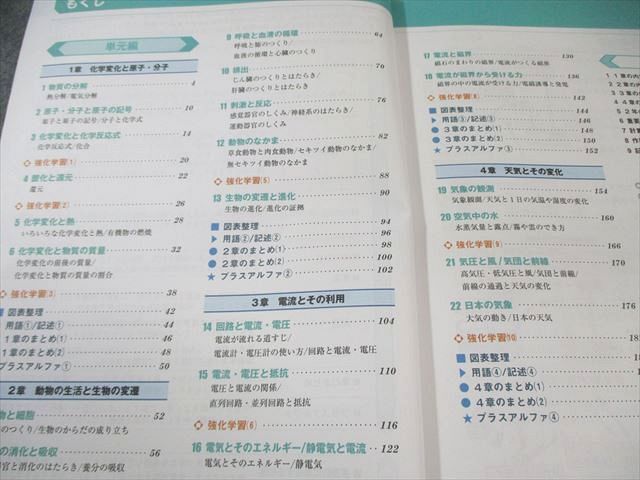 もくじ
単元編
1章 化学変化と原子・分子
1 物質の分解 4
熱分解/電気分解
2 原子・分子と原子の記号 10
原子と原子の記号/分子と化学式
3 化学変化と化学反応式 14
化学反応式/化合
強化学習(1) 20
4 酸化と還元 22
還元
強化学習(2) 26
5 化学変化と熱 28
いろいろな化学変化と熱/有機物の燃焼
6 化学変化と物質の質量 32
化学変化の前後の質量/
化学変化と物質の質量の割合
強化学習(3) 38
図表整理 42
用語①/記述① 44
1章のまとめ(1) 46
1章のまとめ(2) 48
プラスアルファ① 50
2章 動物の生活と生物の変遷
物と細胞 52
のつくり/生物のからだの成り立ち
の消化と吸収 56
官と消化のはたらき/養分の吸収
9 呼吸と血液の循環 64
呼吸と肺のつくり/
血液の循環と心臓のつくり
10 排出 70
じん臓のつくりとはたらき/
肝臓のつくりとはたらき
11 刺激と反応 76
感覚器官のしくみ/神経系のはたらき/
運動器官のしくみ
12 動物のなかま 82
草食動物と肉食動物/セキツイ動物のなかま/
無セキツイ動物のなかま
強化学習(5) 88
13 生物の変遷と進化 90
生物の進化/進化の証拠
図表整理 94
用語②/記述② 96
2章のまとめ(1) 98
2章のまとめ(2) 100
プラスアルファ② 102
3章 電流とその利用
14 回路と電流・電圧 104
電流が流れる道すじ/
電流計・電圧計の使い方/回路と電流・電圧
15 電流・電圧と抵抗 110
電圧と電流の関係/
直列回路・並列回路と抵抗
強化学習(6) 116
16 電気とそのエネルギー/静電気と電流 122
電気とそのエネルギー/静電気
17 電流と磁界 130
磁石のまわりの磁界/電流がつくる磁界
18 電流が磁界から受ける力 136
磁界の中の電流が受ける力/電磁誘導と発電
強化学習(8) 142
図表整理 144
用語③/記述③ 146
3章のまとめ(1) 148
3章のまとめ(2) 150
プラスアルファ③ 152
4章 天気とその変化
19 気象の観測 154
気象観測/天気と1日の気温や湿度の変化
20 空気中の水 160
水蒸気量と露点/霧や雲のでき方
強化学習(9) 166
21 気圧と風/気団と前線 170
高気圧・低気圧と風/気団と前線/
前線の通過と天気の変化
22 日本の気象 176
大気の動き/日本の天気
強化学習(10)
図表整理
用語④/記述④
4章のまとめ(1)
4章のまとめ(2)
プラスアルファ④